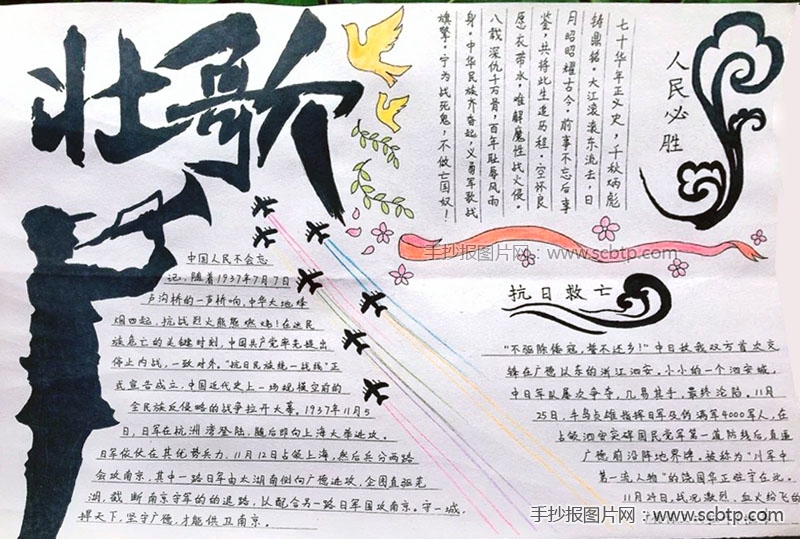 壮歌
七十华年正义史，千秋炳彪
铸鼎铭。大江滚滚东流去，日
月昭昭耀古今。前事不忘后事
鉴，共将此生追历程。空怀良
愿衣带水，难解魔性战火侵。
八载深仇千万骨，百年耻辱风雨
身。中华民族齐奋起，义勇军歌战
旗擎。宁为战死鬼，不做亡国奴！
人民必胜
手抄报图片网：www.scbtp.com
中国人民不会忘
记，随着1937年7月7日
卢沟桥的一声桥响，中华大地烽
烟四起，抗战烈火能熊燃烧！在这民
族危亡的关键时刻，中国共产党率先提出
停止内战，一致对外。"抗日民族统一战线"正
式宣告成立，中国近代史上一场规模空前的
全民族反侵略的战争拉开大幕。1937年11月5
日，日军在杭洲湾登陆，随后即向上海大举进攻。
日军依仗在其优势兵力，11月12日占领上海，然后兵分两路
会攻南京，其中一路日军由太湖南侧向广德进攻，企图直驱芜
湖，截断南京守军的的退路，以配合另一路日军围攻南京。守一城，
捍天下，坚守广德，才能供卫南京。
抗日救亡
"不驱除倭寇，誓不还乡！"中日敌我双方首次交
锋在广德以东的浙江泗安，小小的一个泗安城，
中日军队屡次争夺，几易其手，最终沦陷。11月
25日，牛岛贞雄指挥日军及伪满军4000军人，在
占领泗安突破国民党军第一道防线后，直逼
广德前沿阵地界牌，被称为"川军中
第一流人物"的饶国华正驻守在此。
11月29日，战况激烈，血火纷飞的
手抄报图片网：www.scbtp.com